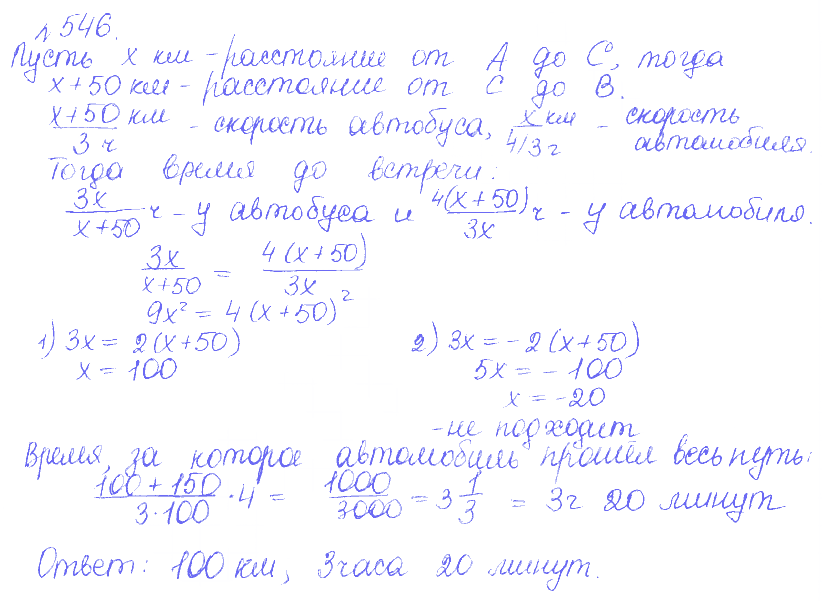 № 546.
Пусть x км - расстояние от A до C, тогда
x + 50 км - расстояние от C до B.
(x+50 км)/(3 ч) - скорость автобуса, (x км)/(4/3 ч) - скорость автомобиля.
Тогда время до встречи:
3x/(x+50) ч - у автобуса и 4(x+50)/3x ч - у автомобиля.
3x/(x+50) = 4(x+50)/3x
9x² = 4(x+50)²
1) 3x = 2(x+50) 2) 3x = -2(x+50)
x = 100 5x = -100
x = -20
- не подходит
Время, за которое автомобиль прошёл весь путь:
(100 + 150)/(3·100) · 4 = 1000/3000 = 3 1/3 = 3ч 20 минут
Ответ: 100 км, 3 часа 20 минут.